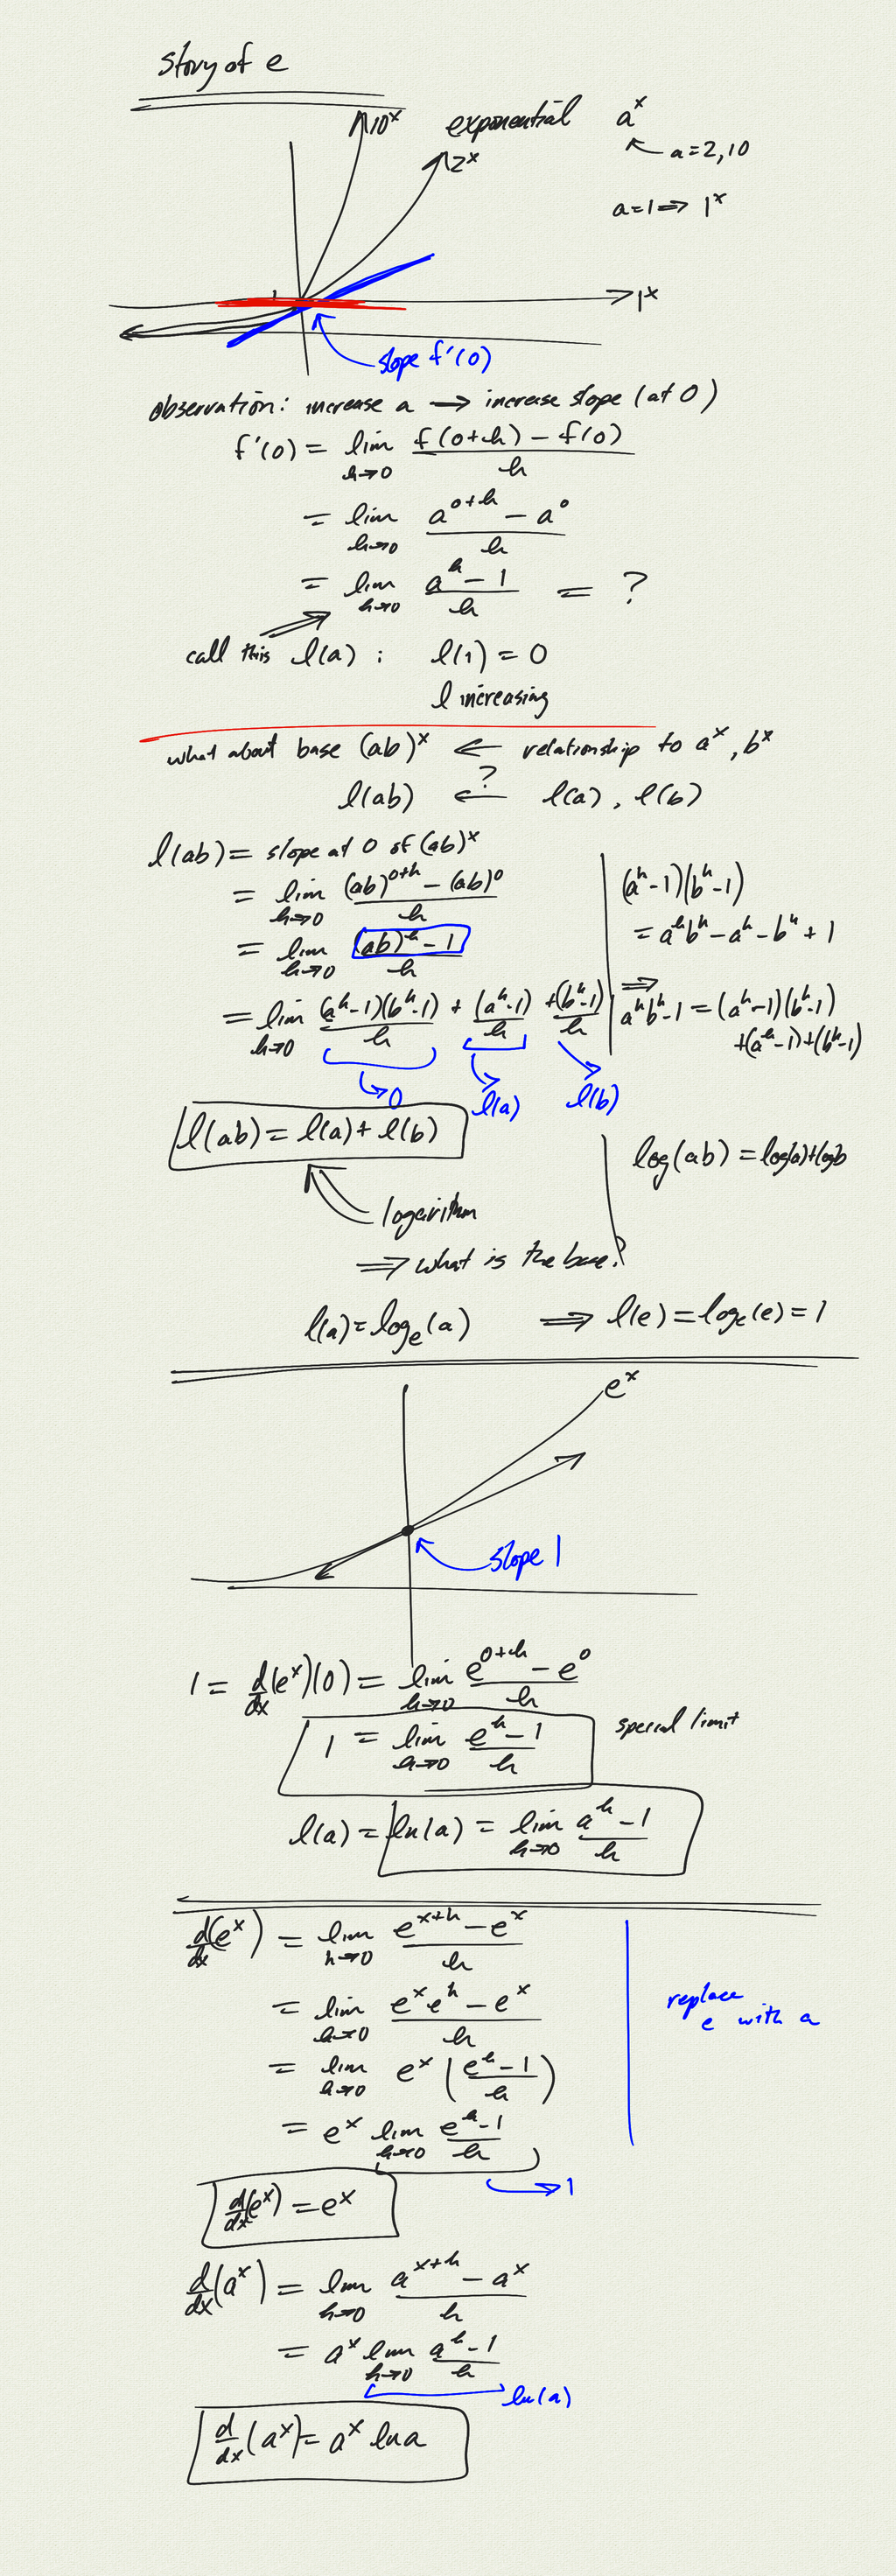 story of e
10^x
2^x
exponential a^x
a=2,10
a=1 ⟹ 1^x
1
1^x
slope f'(0)
observation: increase a → increase slope (at 0)
f'(0) = lim_{h→0} (f(0+h) - f(0))/h
= lim_{h→0} (a^{0+h} - a^0)/h
= lim_{h→0} (a^h - 1)/h = ?
call this l(a) : l(1) = 0
l increasing
what about base (ab)^x ← relationship to a^x, b^x
l(ab) ←? l(a), l(b)
l(ab) = slope at 0 of (ab)^x
= lim_{h→0} ((ab)^{0+h} - (ab)^0)/h
= lim_{h→0} ((ab)^h - 1)/h
= lim_{h→0} (a^h-1)(b^h-1)/h + (a^h-1)/h + (b^h-1)/h
→ 0
l(a)
l(b)
(a^h-1)(b^h-1)
= a^h b^h - a^h - b^h + 1
⟹
a^h b^h - 1 = (a^h-1)(b^h-1)
+(a^h-1)+(b^h-1)
l(ab) = l(a) + l(b)
log(ab) = log(a)+log b
logarithm
⟹ what is the base?
l(a) = log_e(a) ⟹ l(e) = log_e(e) = 1
e^x
slope 1
1 = d/dx(e^x)(0) = lim_{h→0} (e^{0+h} - e^0)/h
1 = lim_{h→0} (e^h - 1)/h
special limit
l(a) = ln(a) = lim_{h→0} (a^h - 1)/h
d/dx(e^x) = lim_{h→0} (e^{x+h} - e^x)/h
= lim_{h→0} (e^x e^h - e^x)/h
= lim_{h→0} e^x ((e^h - 1)/h)
= e^x lim_{h→0} (e^h - 1)/h
→ 1
replace
e with a
d/dx(e^x) = e^x
d/dx(a^x) = lim_{h→0} (a^{x+h} - a^x)/h
= a^x lim_{h→0} (a^h - 1)/h
ln(a)
d/dx(a^x) = a^x ln a